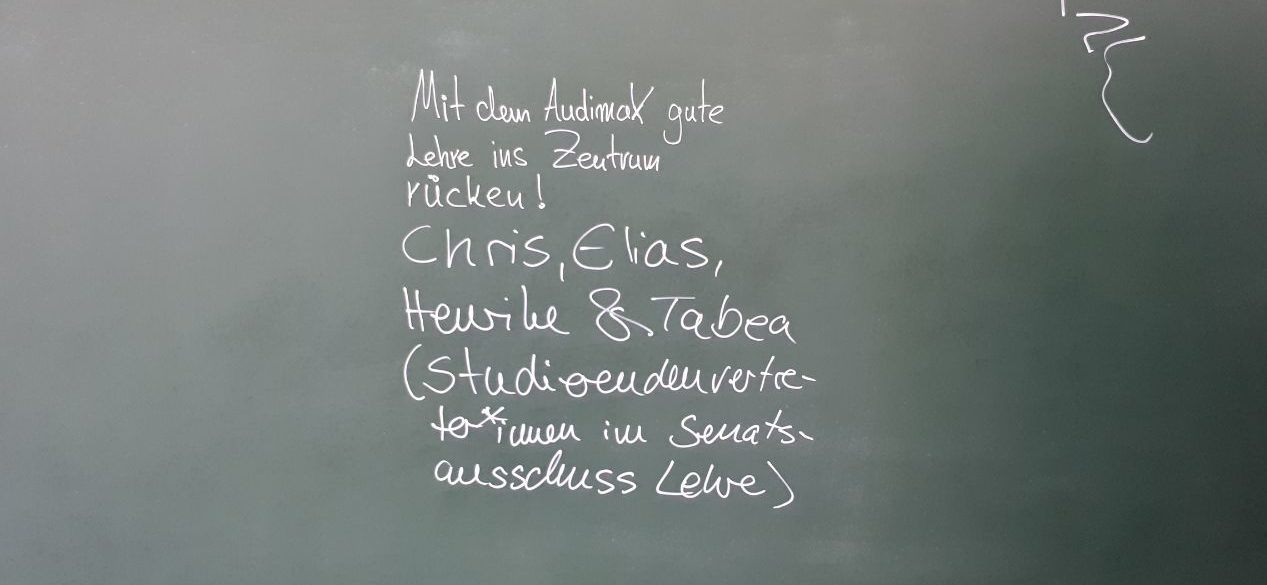 Mit dem AudimaX gute
Lehre ins Zentrum
rücken!
Chris, Elias,
Henrike & Tabea
(Studierendenvertre-
ter*innen im Senats-
ausschuss Lehre)